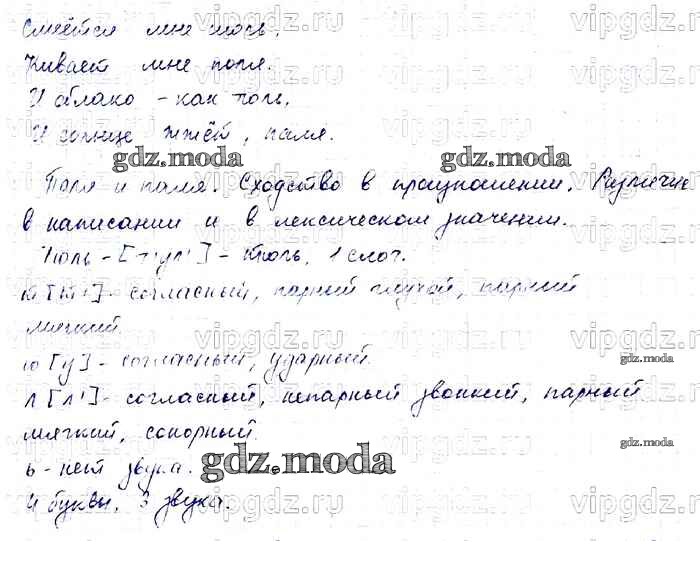 Смеётся мне июль,
Кивает мне поля.
И облако - как тюль,
И солнце жжёт, паля.
Поля и паля. Сходство в произношении. Различие
в написании и в лексическом значении.
Тюль - [т'ул'] - тюль, 1 слог.
т [т'] - согласный, парный глухой, парный
мягкий
ю [у] - согласный, ударный.
л [л'] - согласный, непарный звонкий, парный
мягкий, сонорный.
ь - нет звука.
4 буквы, 3 звука.
gdz.moda
gdz.moda
gdz.moda
gdz.moda
gdz.moda
vipgdz.ru